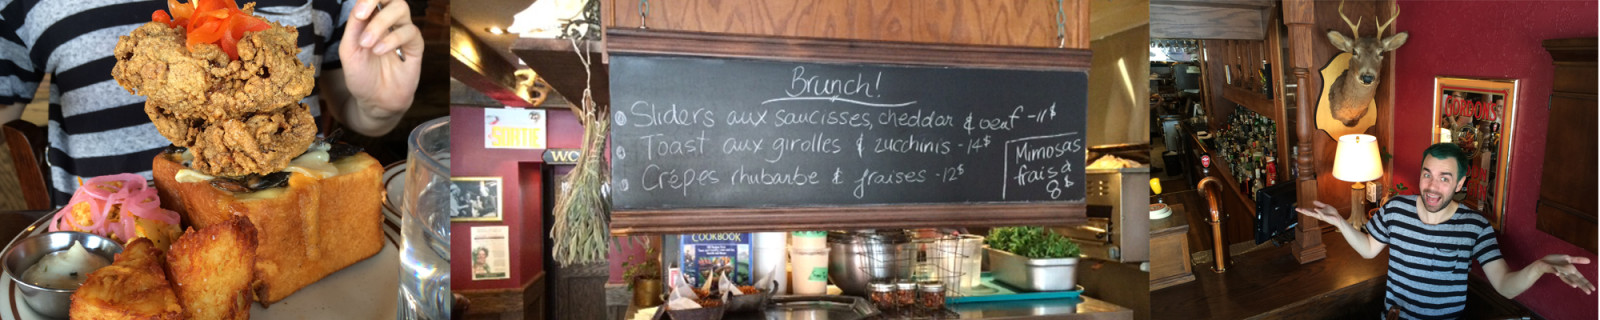 SORTIE
WO
Brunch!
Sliders aux saucisses, cheddar & oeuf -11$
Toast aux girolles & zucchinis -14$
Crêpes rhubarbe & fraises -12$
Mimosas
frais à
8$
COOKBOOK
GORDON'S